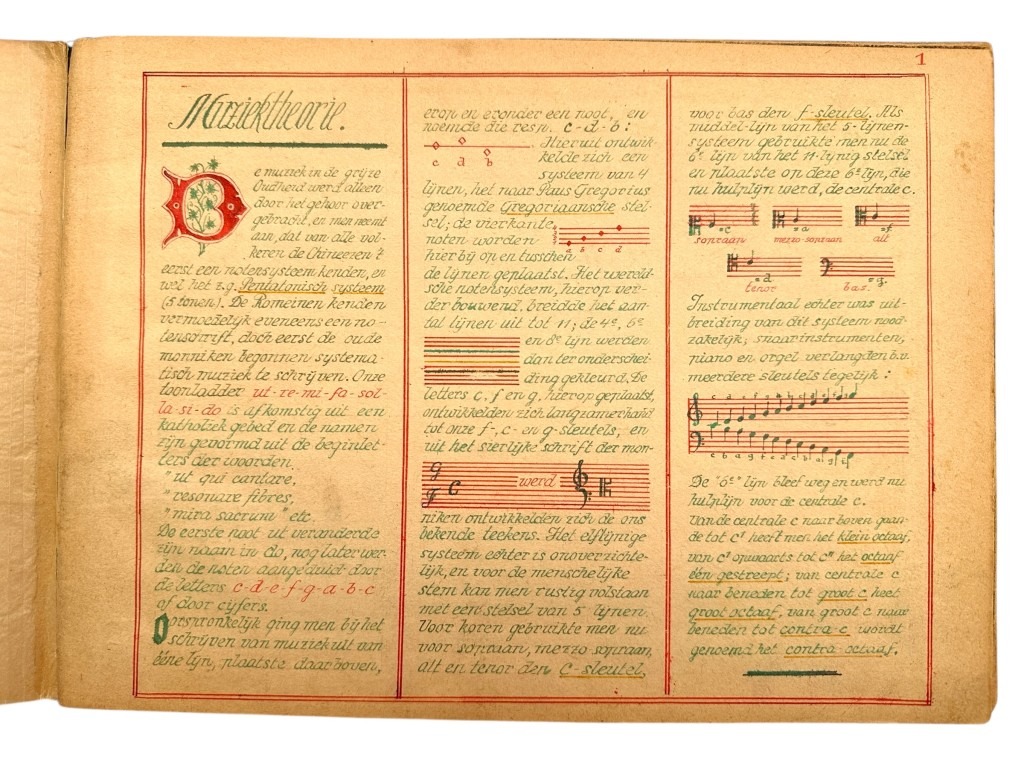 1
Muziektheorie.
De muziek in de grijze
Oudheid werd alleen
door het gehoor over-
gebracht, en men neemt
aan, dat van alle vol-
keren de Chineezen 't
eerst een notensysteem kenden, en
wel het z.g. Pentatonisch systeem
(5 tonen). De Romeinen kenden
vermoedelijk eveneens een no-
tenschrift, doch eerst de oude
monniken begonnen systema-
tisch muziek te schrijven. Onze
toonladder ut-re-mi-fa-sol-
la-si-do is afkomstig uit een
katholiek gebed en de namen
zijn gevormd uit de beginlet-
ters der woorden.
"ut qui cantare,
"resonare fibres,
"mira sacrum" etc.
De eerste noot ut veranderde
zijn naam in do, nog later wer-
den de noten aangeduid door
de letters c-d-e-f-g-a-b-c
of door cijfers.
Oorspronkelijk ging men bij het
schrijven van muziek uit van
ééne lijn, plaatste daarboven,
erop en eronder een noot, en
noemde die resp. c-d-b:
c d b
Hieruit ontwik-
kelde zich een
systeem van 4
lijnen, het naar Paus Gregorius
genoemde Gregoriaansche stel-
sel; de vierkante
noten worden
a b c d
hierbij op en tusschen
de lijnen geplaatst. Het wereld-
sche notensysteem, hierop ver-
der bouwend, breidde het aan-
tal lijnen uit tot 11; de 4e, 6e
en 8e lijn werden
dan ter onderschei-
ding gekleurd. De
letters c, f en g, hierop geplaatst,
ontwikkelden zich langzamerhand
tot onze f-, c- en g-sleutels, en
uit het sierlijke schrift der mon-
g c F werd
niken ontwikkelden zich de ons
bekende teekens. Het elflijnige
systeem echter is onoverzichte-
lijk, en voor de menschelijke
stem kan men rustig volstaan
met een stelsel van 5 lijnen.
Voor koren gebruikte men nu
voor sopraan, mezzo sopraan,
alt en tenor den C-sleutel,
voor bas den f-sleutel. Als
middel-lijn van het 5-lijnen-
systeem gebruikte men nu de
6e lijn van het 11-lijnig stelsel
en plaatste op deze 6e lijn, die
nu hulplijn werd, de centrale c.
=c =a =f
sopraan mezzo-sopraan alt
=d =g.
tenor bas.
Instrumentaal echter was uit-
breiding van dit systeem nood-
zakelijk; snaarinstrumenten,
piano en orgel verlangden b.v.
meerdere sleutels tegelijk:
De "6e" lijn bleef weg en werd nu
hulplijn voor de centrale c.
Van de centrale c naar boven gaan-
de tot c' heeft men het klein octaaf,
van c' opwaarts tot c" het octaaf
één gestreept; van centrale c
naar beneden tot groot c heet
groot octaaf, van groot c naar
beneden tot contra-c wordt
genoemd het contra-octaaf.